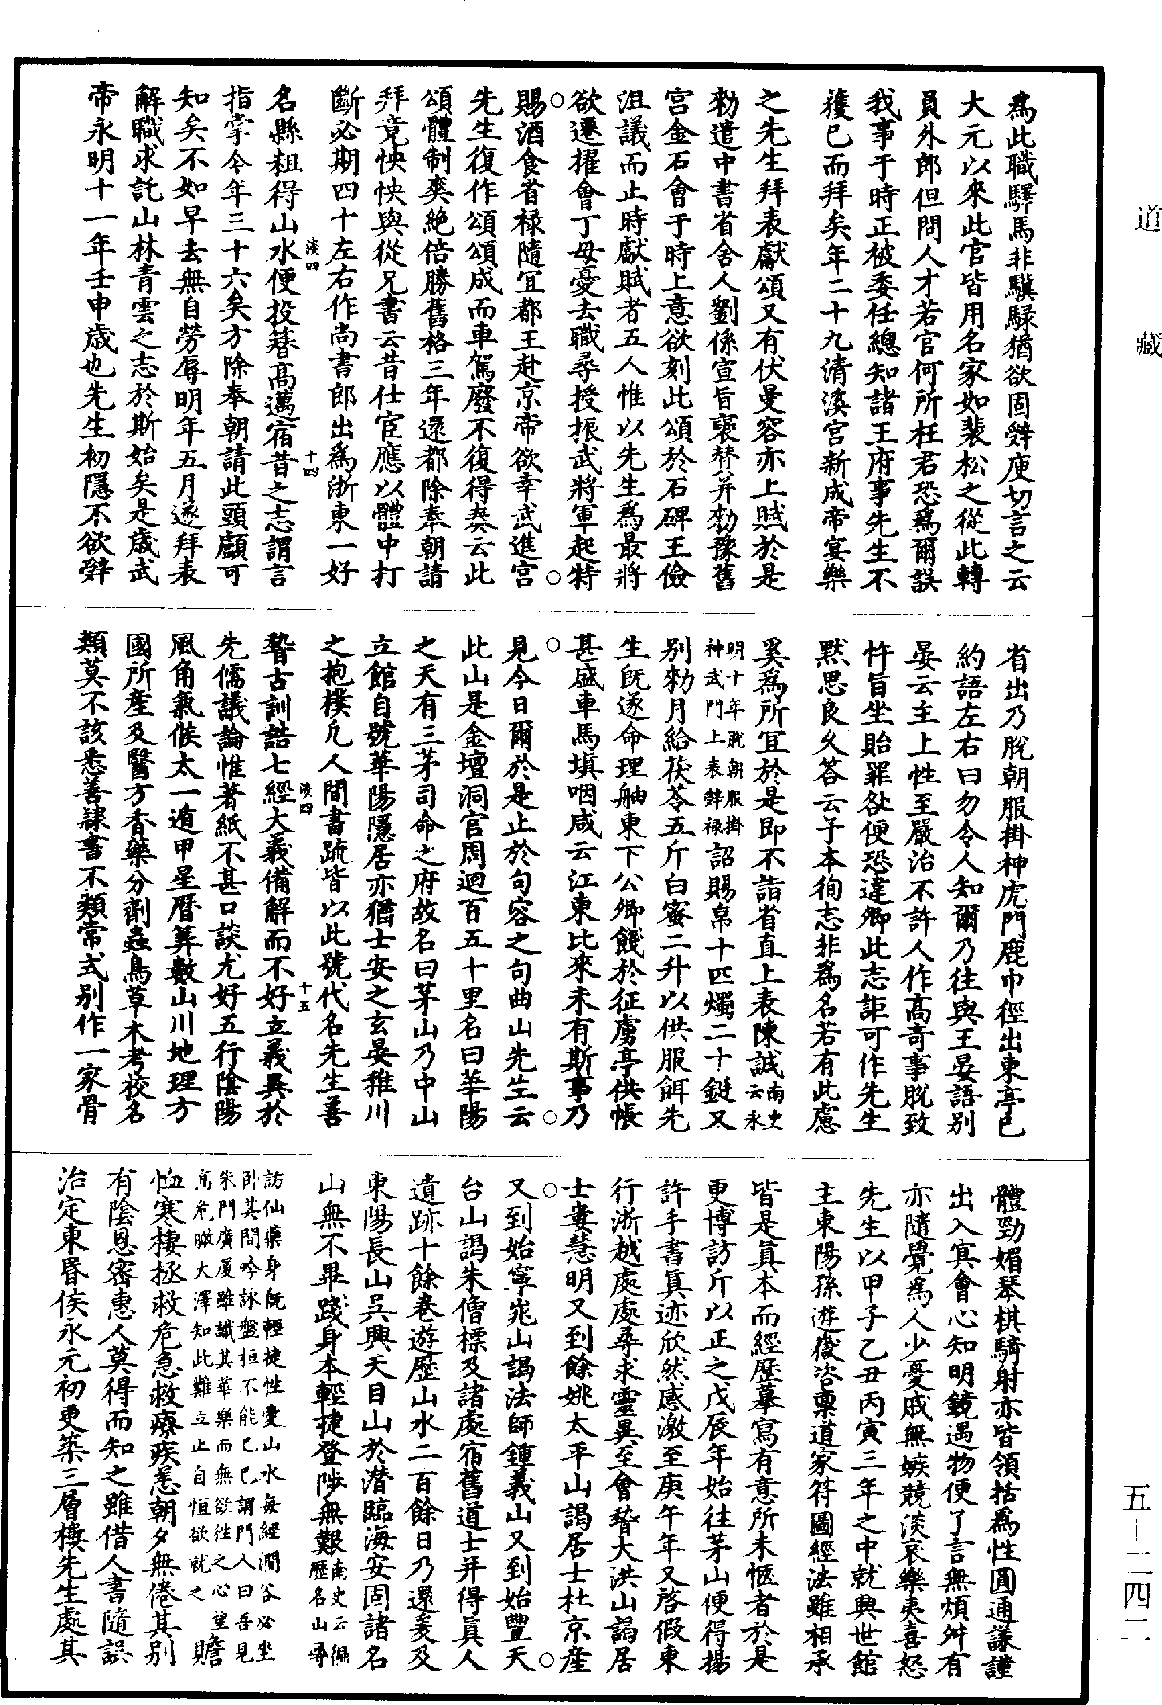 道藏
為此職驛馬非驥騄猶欲固辝庾切言之云
大元以來此官皆用名家如裴松之從此轉
員外郎但問人才若官何所枉君恐為爾誤
我事于時正被委任總知諸王府事先生不
獲已而拜矣年二十九清溪宮新成帝宴樂
之先生拜表獻頌又有伏曼容亦上賦於是
勑遣中書省舍人劉係宣旨褒贊并勑豫舊
宮金石會于時上意欲刻此頌於石碑王儉
沮議而止時獻賦者五人惟以先生為最將
欲遷擢會丁母憂去職尋授振武將軍起特
賜酒食省禄隨宜都王赴京帝欲幸武進宮
先生復作頌頌成而車駕廢不復得奏云此
頌體制爽絕倍勝舊格三年還都除奉朝請
拜竟怏怏與從兄書云昔仕宦應以體中打
斷必期四十左右作尚書郎出為浙東一好
名縣粗得山水便投簪高邁宿昔之志謂言
指掌今年三十六矣方除奉朝請此頭顱可
知矣不如早去無自勞辱明年五月遂拜表
解職求託山林青雲之志於斯始矣是歲武
帝永明十一年壬申歲也先生初隱不欲辝
淡四
十四
省出乃脫朝服掛神虎門鹿巾徑出東亭已
約語左右曰勿令人知爾乃往與王晏語別
晏云主上性至嚴治不許人作高奇事脫致
忤旨坐貽罪咎便恐違卿此志詎可作先生
默思良久答云予本徇志非為名若有此慮
奚為所宜於是即不詣省直上表陳誠南史云永
明十年脫朝服掛神武門上表辝禄詔賜帛十匹燭二十鋌又
別勑月給茯苓五斤白蜜二升以供服餌先
生既遂命理舳東下公卿餞於征虜亭供帳
甚盛車馬填咽咸云江東比來未有斯事乃
見今日爾於是止於句容之句曲山先生云
此山是金壇洞宮周迴百五十里名曰華陽
之天有三茅司命之府故名曰茅山乃中山
立館自號華陽隱居亦猶士安之玄晏稚川
之抱樸凡人間書疏皆以此號代名先生善
稽古訓詁七經大義備解而不好立義異於
先儒議論惟著紙不甚口談尤好五行陰陽
風角氣候太一遁甲星曆筭數山川地理方
國所產及醫方香藥分劑蟲鳥草木考校名
類莫不該悉善隸書不類常式別作一家骨
淡四
十五
體勁媚琴棋騎射亦皆領括為性圓通謙謹
出入㝠會心知明鏡遇物便了言無煩舛有
亦隨覺為人少憂戚無嫉競淡哀樂夷喜怒
先生以甲子乙丑丙寅三年之中就興世館
主東陽孫遊嶽咨稟道家符圖經法雖相承
皆是真本而經歷摹寫有意所未愜者於是
更博訪斤以正之戊辰年始往茅山便得揚
許手書真迹欣然感激至庚午年又啓假東
行浙越處處尋求靈異至會稽大洪山謁居
士婁慧明又到餘姚太平山謁居士杜京產
又到始寧𡵆山謁法師鍾義山又到始豐天
台山謁朱僧標及諸處宿舊道士并得真人
遺跡十餘卷遊歷山水二百餘日乃還爰及
東陽長山吳興天目山於潛臨海安固諸名
山無不畢踐身本輕捷登陟無艱南史云徧歷名山尋
訪仙藥身既輕捷性愛山水每經澗谷必坐臥其間吟詠盤桓不能已已謂門人曰吾見
朱門廣廈雖識其華樂而無欲往之心望高巖瞰大澤知此難立止自恒欲就之贍
恤寒棲拯救危急救療疾恙朝夕無倦其別
有陰恩密惠人莫得而知之雖借人書隨誤
治定東昏侯永元初更築三層樓先生處其
五—二四二